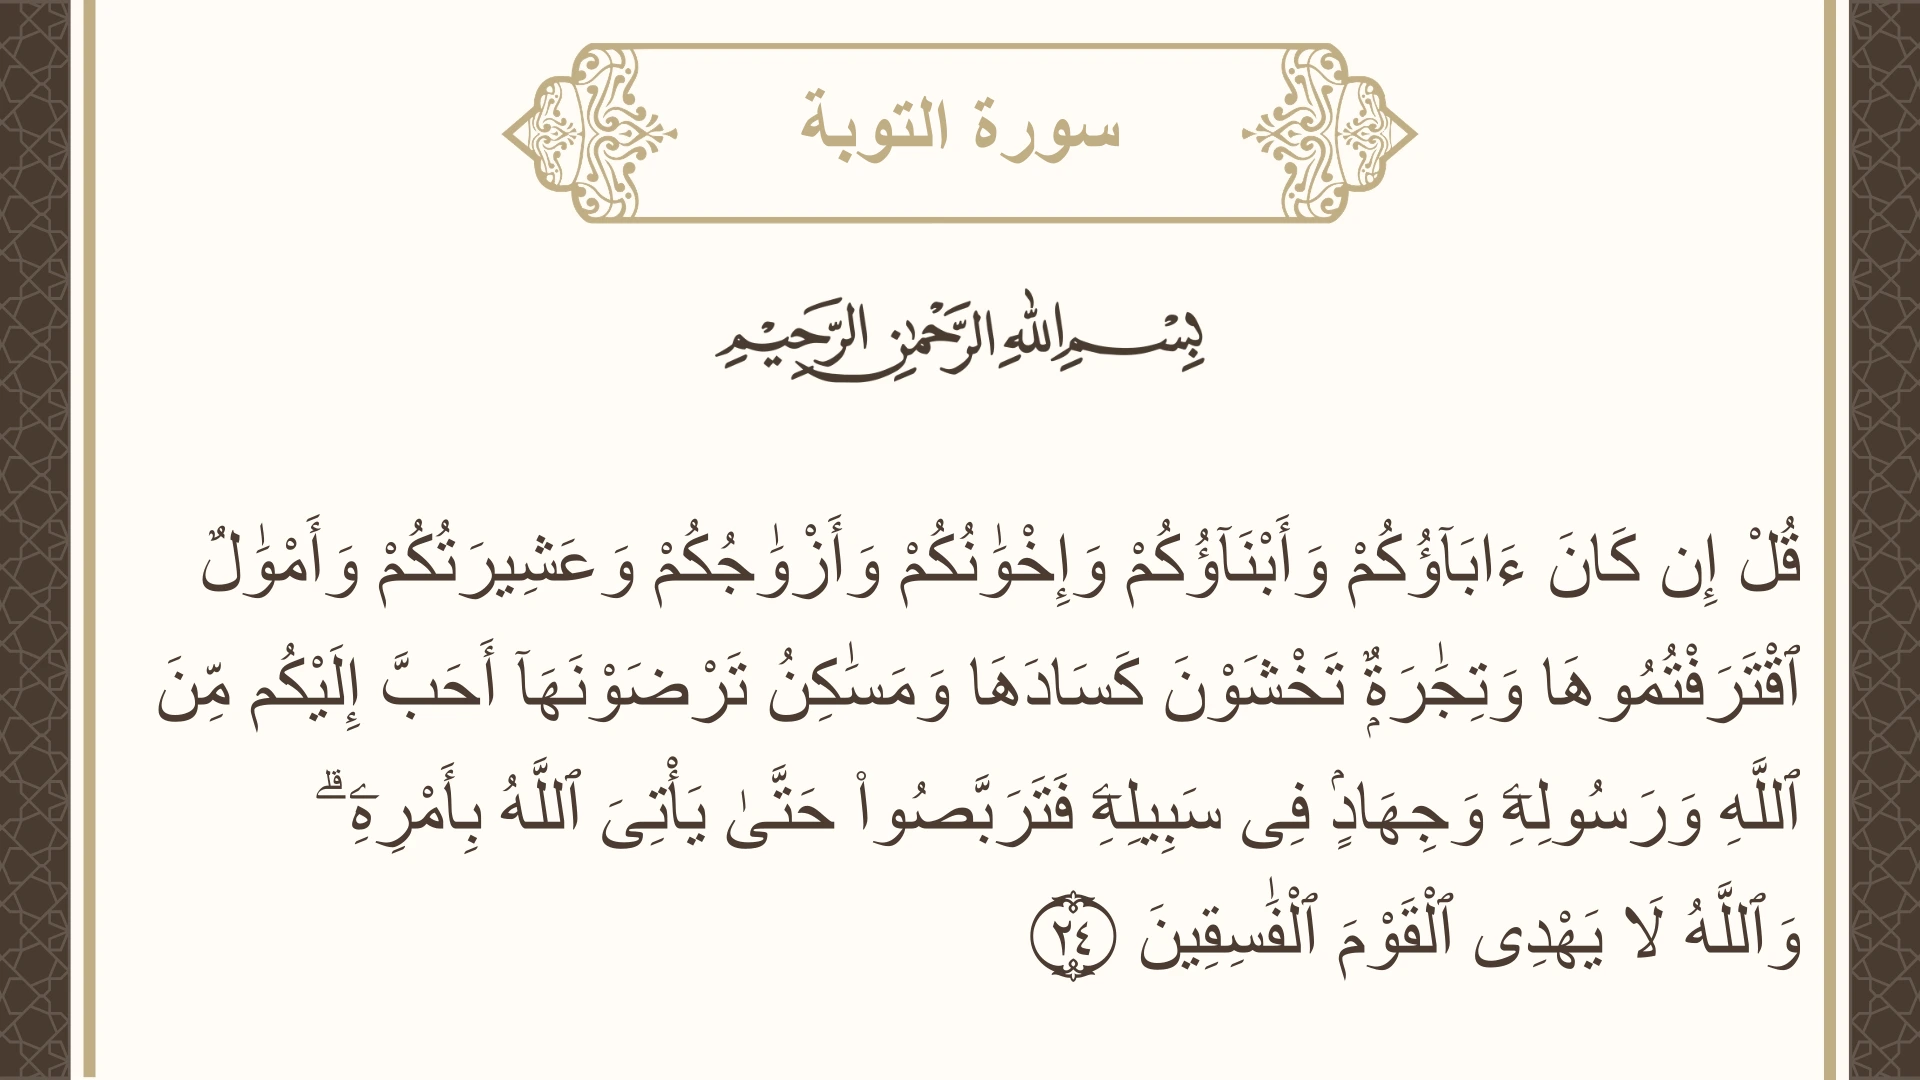 سورة التوبة
بِسْمِ اللهِ الرَّحْمٰنِ الرَّحِيْمِ
قُلْ إِن كَانَ ءَابَآؤُكُمْ وَأَبْنَآؤُكُمْ وَإِخْوَٰنُكُمْ وَأَزْوَٰجُكُمْ وَعَشِيرَتُكُمْ وَأَمْوَٰلٌ
ٱقْتَرَفْتُمُوهَا وَتِجَٰرَةٌۭ تَخْشَوْنَ كَسَادَهَا وَمَسَٰكِنُ تَرْضَوْنَهَآ أَحَبَّ إِلَيْكُم مِّنَ
ٱللَّهِ وَرَسُولِهِۦ وَجِهَادٍۢ فِى سَبِيلِهِۦ فَتَرَبَّصُوا۟ حَتَّىٰ يَأْتِىَ ٱللَّهُ بِأَمْرِهِۦ ۗ
وَٱللَّهُ لَا يَهْدِى ٱلْقَوْمَ ٱلْفَٰسِقِينَ ٢٤